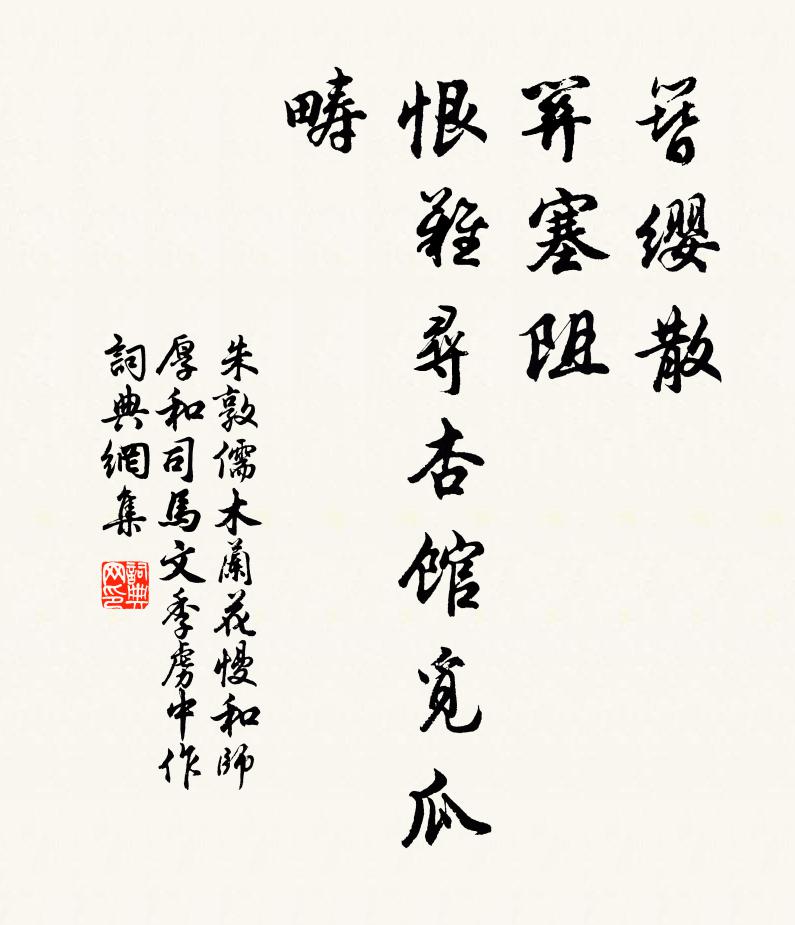 簪纓散
關塞阻
恨難尋杏館覓瓜
疇
朱敦儒木蘭花慢和師
厚和司馬文季虜中作
詞典網集
詞典网印